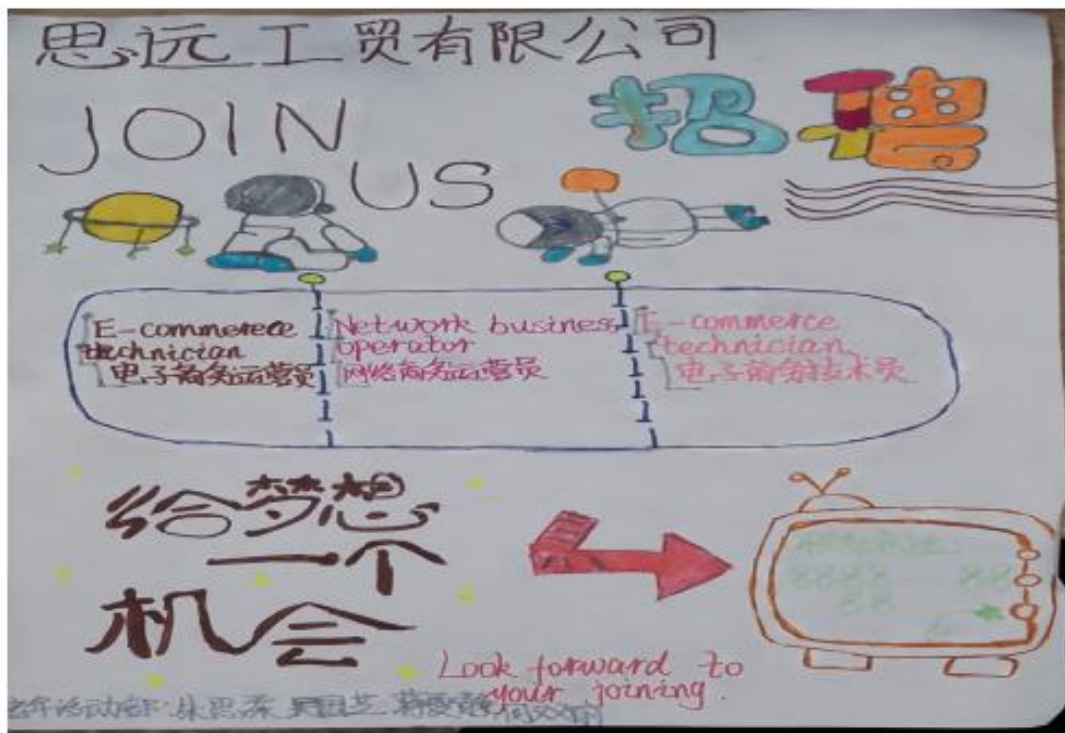 思远工贸有限公司
JOIN
US
招聘
E-commerece
technician
电子商务运营员
Network business
operator
网络商务运营员
E-commerce
technician
电子商务技术员
给梦想
一个
机会
8888 88
88
Look forward to
your joining.